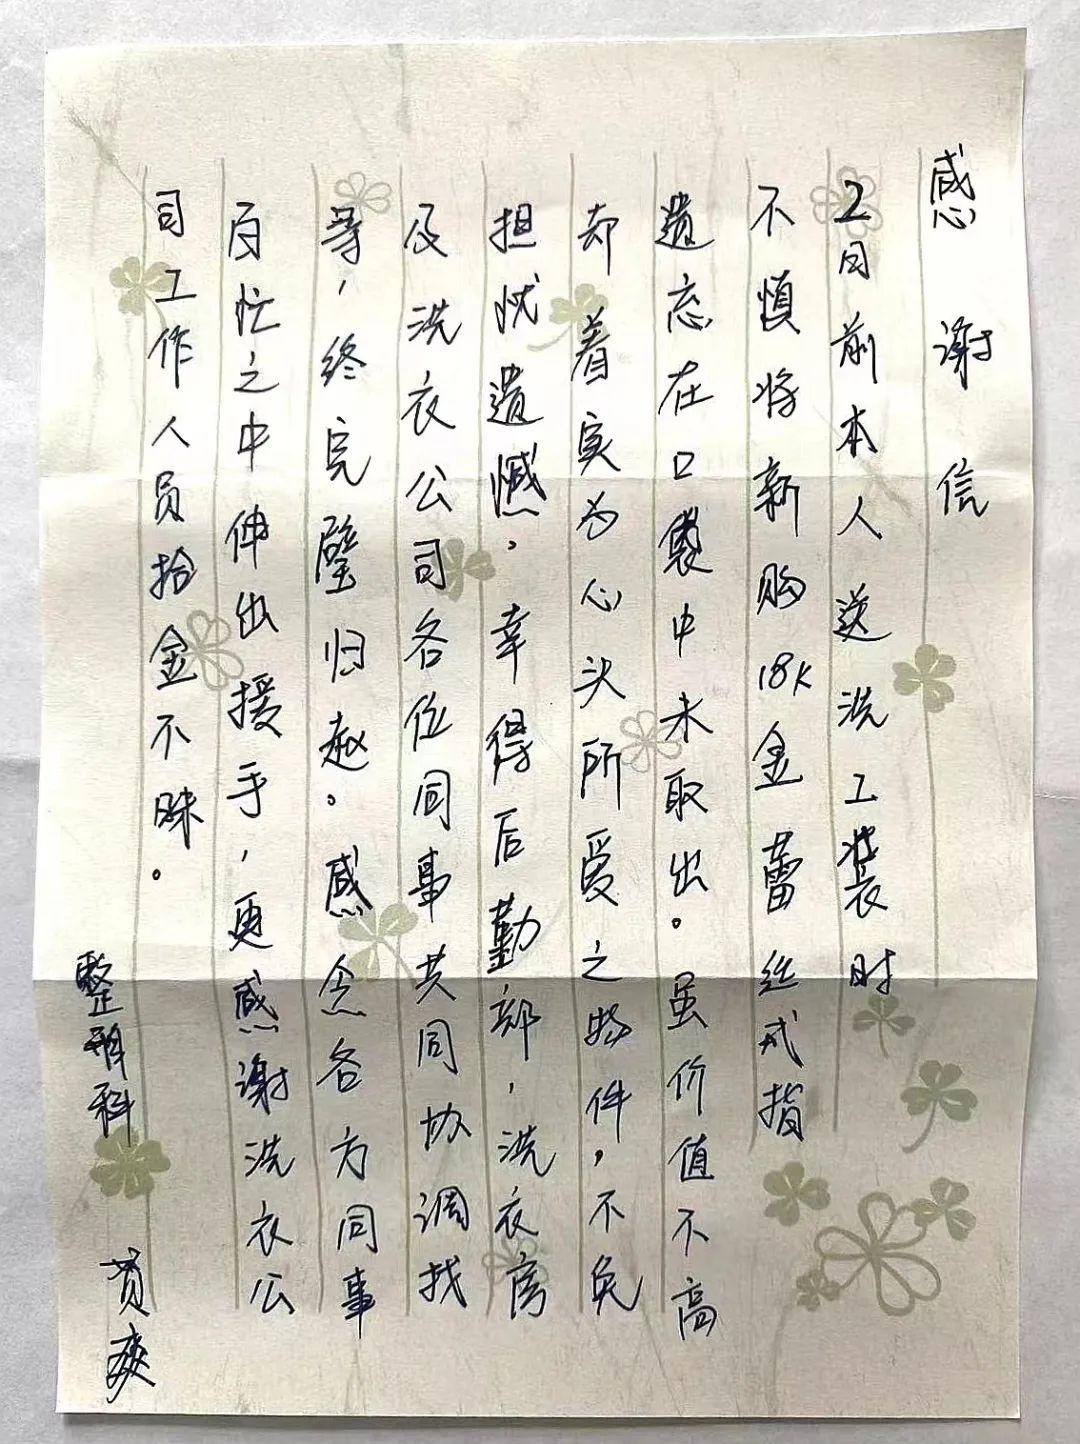 感谢信
2日前本人送洗工装时
不慎将新购18K金蕾丝戒指
遗忘在口袋中未取出。虽价值不高
却着实为心头所爱之物件，不免
担忧遗憾，幸得后勤部，洗衣房
及洗衣公司各位同事共同协调找
等，终完璧归赵。感念各方同事
百忙之中伸出援手，更感谢洗衣公
司工作人员拾金不昧。
整形科 黄爽